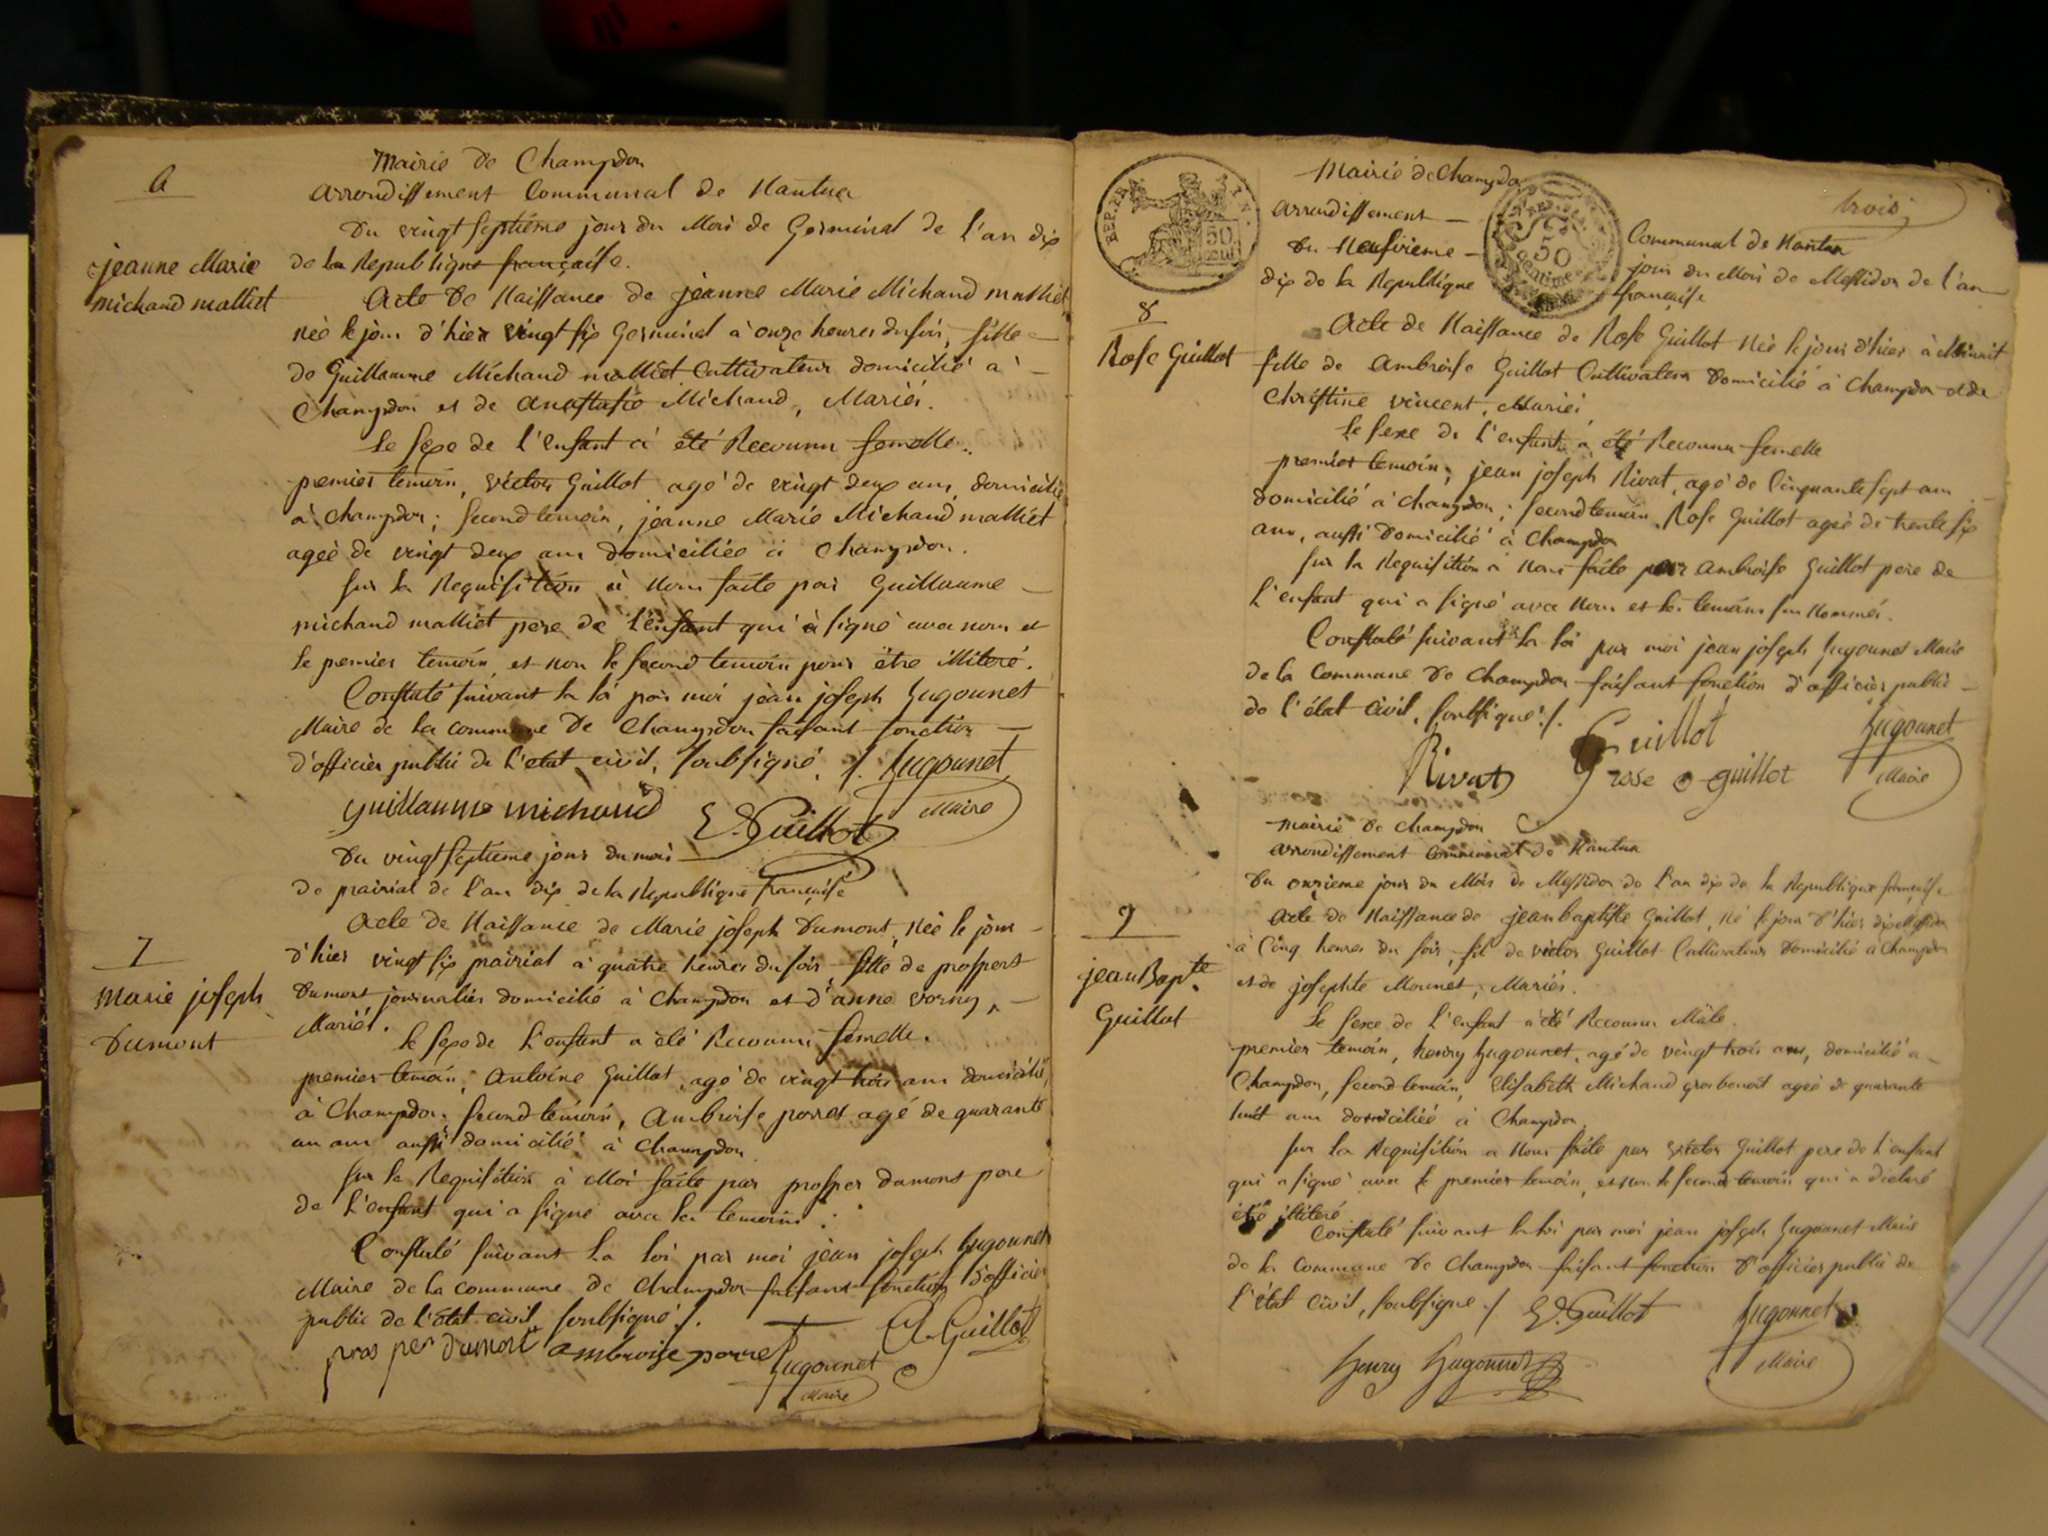 6
Mairie de Champdor
arrondissement Communal de Nantua
Du vingt septième jour du Mois de Germinal de l'an dix
de la Republique française.
jeanne Marie
michaud malliet
Acte de Naissance de jeanne Marie Michaud malliet,
née le jour d'hier vingt six Germinal à onze heures du soir, fille
de Guillaume Michaud malliet Cultivateur domicilié à
Champdor et de anastasie Michaud, Mariés.
Le sexe de l'enfant a été Reconnu femelle.
premier temoin, victor Guillot agé de vingt deux ans, domicilié
à Champdor; second temoin, jeanne Marie Michaud malliet
ageé de vingt deux ans domiciliée à Champdor.
sur la Requisition à nous faite par Guillaume
michaud malliet pere de l'enfant qui a signé avec nous et
le premier temoin, et non le second temoin pour être illiteré.
Constaté suivant la loi par moi jean joseph Hugonnet
Maire de la commune de Champdor faisant fonction
d'officier public de l'etat civil, soussigné ./. Hugonnet
Maire
guillaume michaud V. Guillot
Du vingt septieme jour du mois
de prairial de l'an dix de la Republique française
7
Marie joseph
Dumont
Acte de Naissance de Marie joseph Dumont, née le jour
d'hier vingt six prairial à quatre heures du soir, fille de prosper
Dumont journalier domicilié à Champdor et d'anne
Mariés.
Le sexe de l'enfant a été Reconnu femelle.
premier temoin, Antoine Guillot, agé de vingt trois ans domicilié
à Champdor. second temoin, Ambroise porret agé de quarante
un ans aussi domicilié à Champdor.
sur la Requisition à Moi faite par prosper dumont pere
de l'enfant qui a signé avec les temoins.
Constaté suivant la loi par moi jean joseph Hugonnet
Maire de la commune de Champdor faisant fonction d'officier
public de l'état civil soussigné ./.
A. Guillot
pros per dumont ambroise porret Hugonnet
Maire
REP. FRA.
50
CENT
50
trois
Mairie de Champdor
arrondissement Communal de Nantua
Du Neufvieme jour du Mois de Messidor de l'an
dix de la Republique française
8
Rose Guillot
Acte de Naissance de Rose Guillot née le jour d'hier à Minuit
fille de Ambroise Guillot Cultivateur domicilié à Champdor et de
Christine vincent, Mariés
Le sexe de l'enfant a été Reconnu femelle
premier temoin, jean joseph Rivat, agé de Cinquante sept ans
domicilié à Champdor; second temoin, Rose Guillot ageé de trente six
ans, aussi domicilié à Champdor
sur la Requisition à nous faite par ambroise Guillot pere de
l'enfant qui a signé avec nous et les temoins sus nommés.
Constaté suivant la loi par moi jean joseph Hugonnet Maire
de la Commune de Champdor faisant fonction d'officier public
de l'état civil, soussigné ./.
Guillot Hugonnet
Rivat rosse guillot Maire
mairie de Champdor
arrondissement communal de Nantua
Du onzieme jour du Mois de Messidor de l'an dix de la Republique française
9
jean Bapte.
Guillot
Acte de Naissance de jean baptiste Guillot, né le jour d'hier dix Messidor
à Cinq heures du soir, fils de victor Guillot Cultivateur domicilié à Champdor
et de josephte Monnet, Mariés.
Le sexe de l'enfant a été Reconnu Mâle.
premier temoin, henry hugonnet, agé de vingt trois ans, domicilié à
Champdor, second temoin, Elisabeth Michaud grosbenoit ageé de quarante
huit ans domiciliée à Champdor
sur la Requisition à nous faite par victor Guillot pere de l'enfant
qui a signé avec le premier temoin, et non le second temoin qui a declaré
être illiteré
Constaté suivant la loi par moi jean joseph Hugonnet Maire
de la Commune de Champdor faisant fonction d'officier public de
l'état civil, soussigné ./. V. Guillot Hugonnet
henry hugonnet Maire